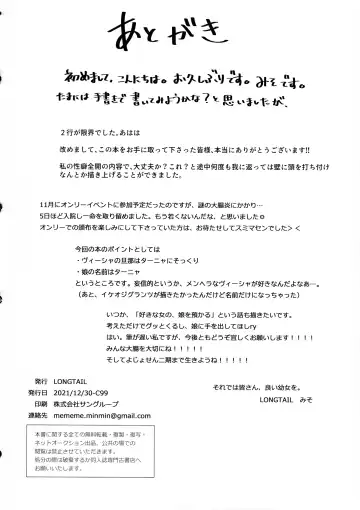 あとがき
初めまして、こんにちは。お久しぶりです。みそです。
たまには手書きで書いてみようかな?と思いましたが、
２行が限界でした。あはは
改めまして、この本をお手に取って下さった皆様、本当にありがとうございます!!
私の性癖全開の内容で、大丈夫か?これ?と途中何度も我に返っては壁に頭を打ち付け
なんとか描き上げることができました。
11月にオンリーイベントに参加予定だったのですが、謎の大腸炎にかかり…
5日ほど入院し一命を取り留めました。もう若くないんだな、と思いました。
オンリーでの頒布を楽しみにして下さっていた方は、お待たせしてスミマセンでした＞＜
今回の本のポイントとしては
・ヴィーシャの旦那はターニャにそっくり
・娘の名前はターニャ
というところです。妄信的というか、メンヘラなヴィーシャが好きなんだよなあー。
（あと、イケオジグランツが描きたかったんだけど名前だけになっちゃった）
いつか、「好きな女の、娘を預かる」という話も描きたいです。
考えただけでグッとくるし、娘に手を出してはしry
はい。筆が遅いで私ですが、今後ともどうぞ宜しくお願いします！！！！
みんな大腸を大切にね！！！！！
そしてよじょせん二期まで生きようね！！！！！
それでは皆さん、良い幼女を。
LONGTAIL　みそ
発行　LONGTAIL
発行日　2021/12/30-C99
印刷　株式会社サングループ
連絡先　mememe.minmin@gmail.com
本書に関する全ての無断転載・複製・複写・
ネットオークション出品、公共の場での
閲覧は禁止させていただきます。
処分の際は破棄するか同人誌専門古書店へ
お願いいたします。